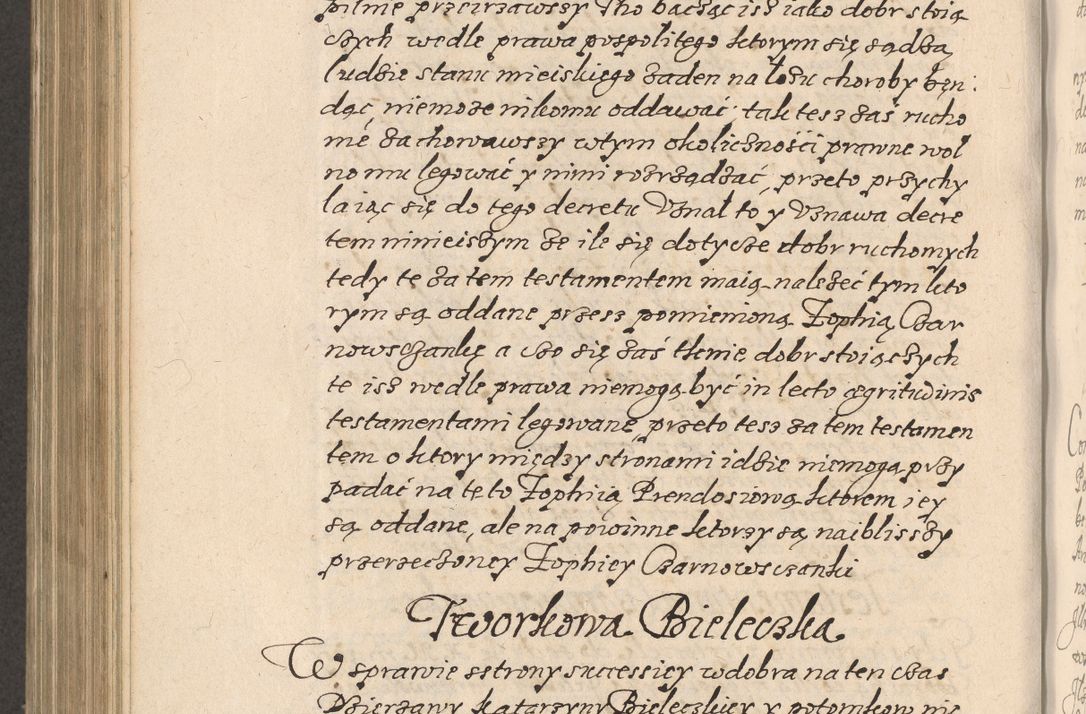 pilnie przeirzawszy Tho bacząc isz iako dobr stoią
czych wedle prawa pospolitego ktorym się sądzą
ludzie stanu mieiskiego żaden na łożu choroby będ:
dąc, niemoże nikomu oddawać, tak tesz zaś rucho
me zachowawszy wtym okolicznośći prawne wol
no mu legować y nimi rozrządzać, przeto przychy
laiąc się do tego decretu Vznał to y Vznawa decre
tem ninieiszym że ile się dotycze dobr ruchomych
tedy te za tem testamentem maią należeć tym kto
rym są oddane przesz pomienioną Zophią Czar
nowsczankę a czo się zaś tknie dobr stoiączych
te isz wedle prawa niemogą być in lecto ægritudinis
testamentami legowane przeto tesz za tem testamen
tem o ktory między stronami idzie niemogą przy
padać na tę to Zophiią Prendosiową ktorem iey
są oddane, ale na powinne ktorzy są naiblisszy
przerzeczoney Zophiey Czarnowsczanki
Tworkowa Bieleczka
W sprawie sstrony successiey w dobra na ten czas
Dzierżawy Katarzyny Bieleczkiey y potomkow nie